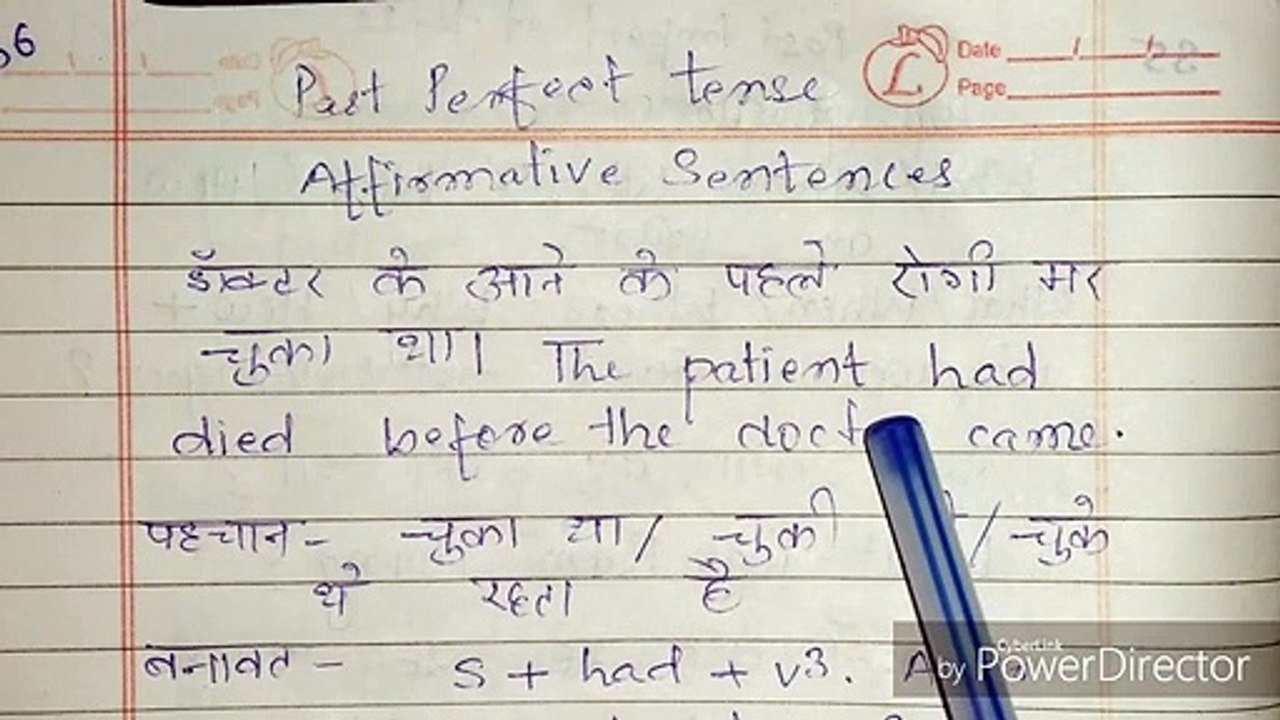 56
Date
Page
Past Perfect tense
Affirmative Sentences
डॉक्टर के आने के पहले रोगी मर
चुका था। The patient had
died before the doct came.
पहचान - चुका था / चुकी / चुके
थे रहता है
बनावट - S + had + v3. A
CyberLink
by PowerDirector